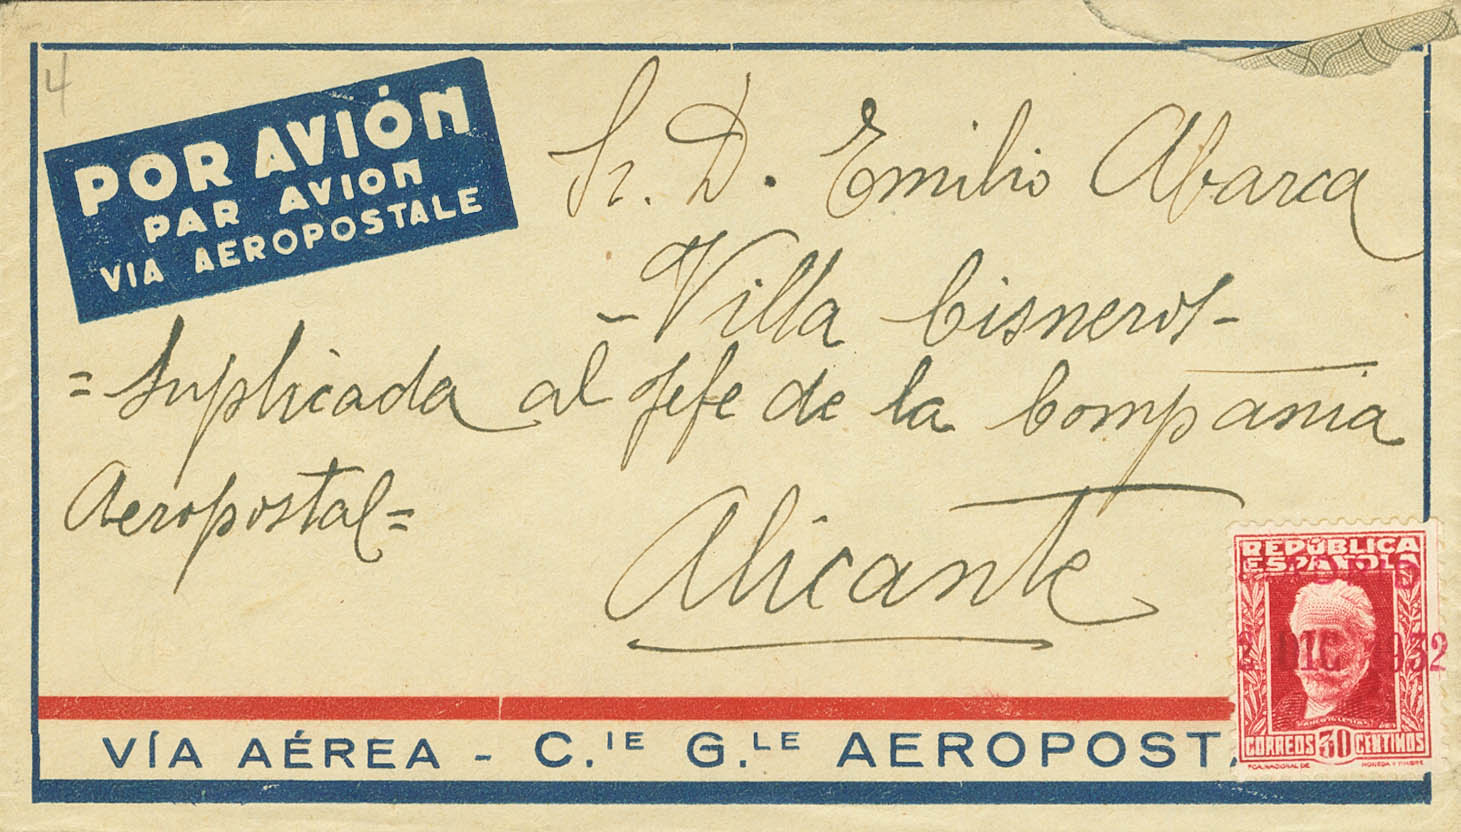 4
POR AVIÓN
PAR AVION
VIA AEROPOSTALE
Sr. D. Emilio Abarca
- Villa Cisneros -
= Suplicada al Jefe de la Compania
Aeropostal =
Alicante
REPÚBLICA
ESPAÑOLA
2 DIC 1932
CORREOS 30 CENTIMOS
VÍA AÉREA - C.IE G.LE AEROPOST